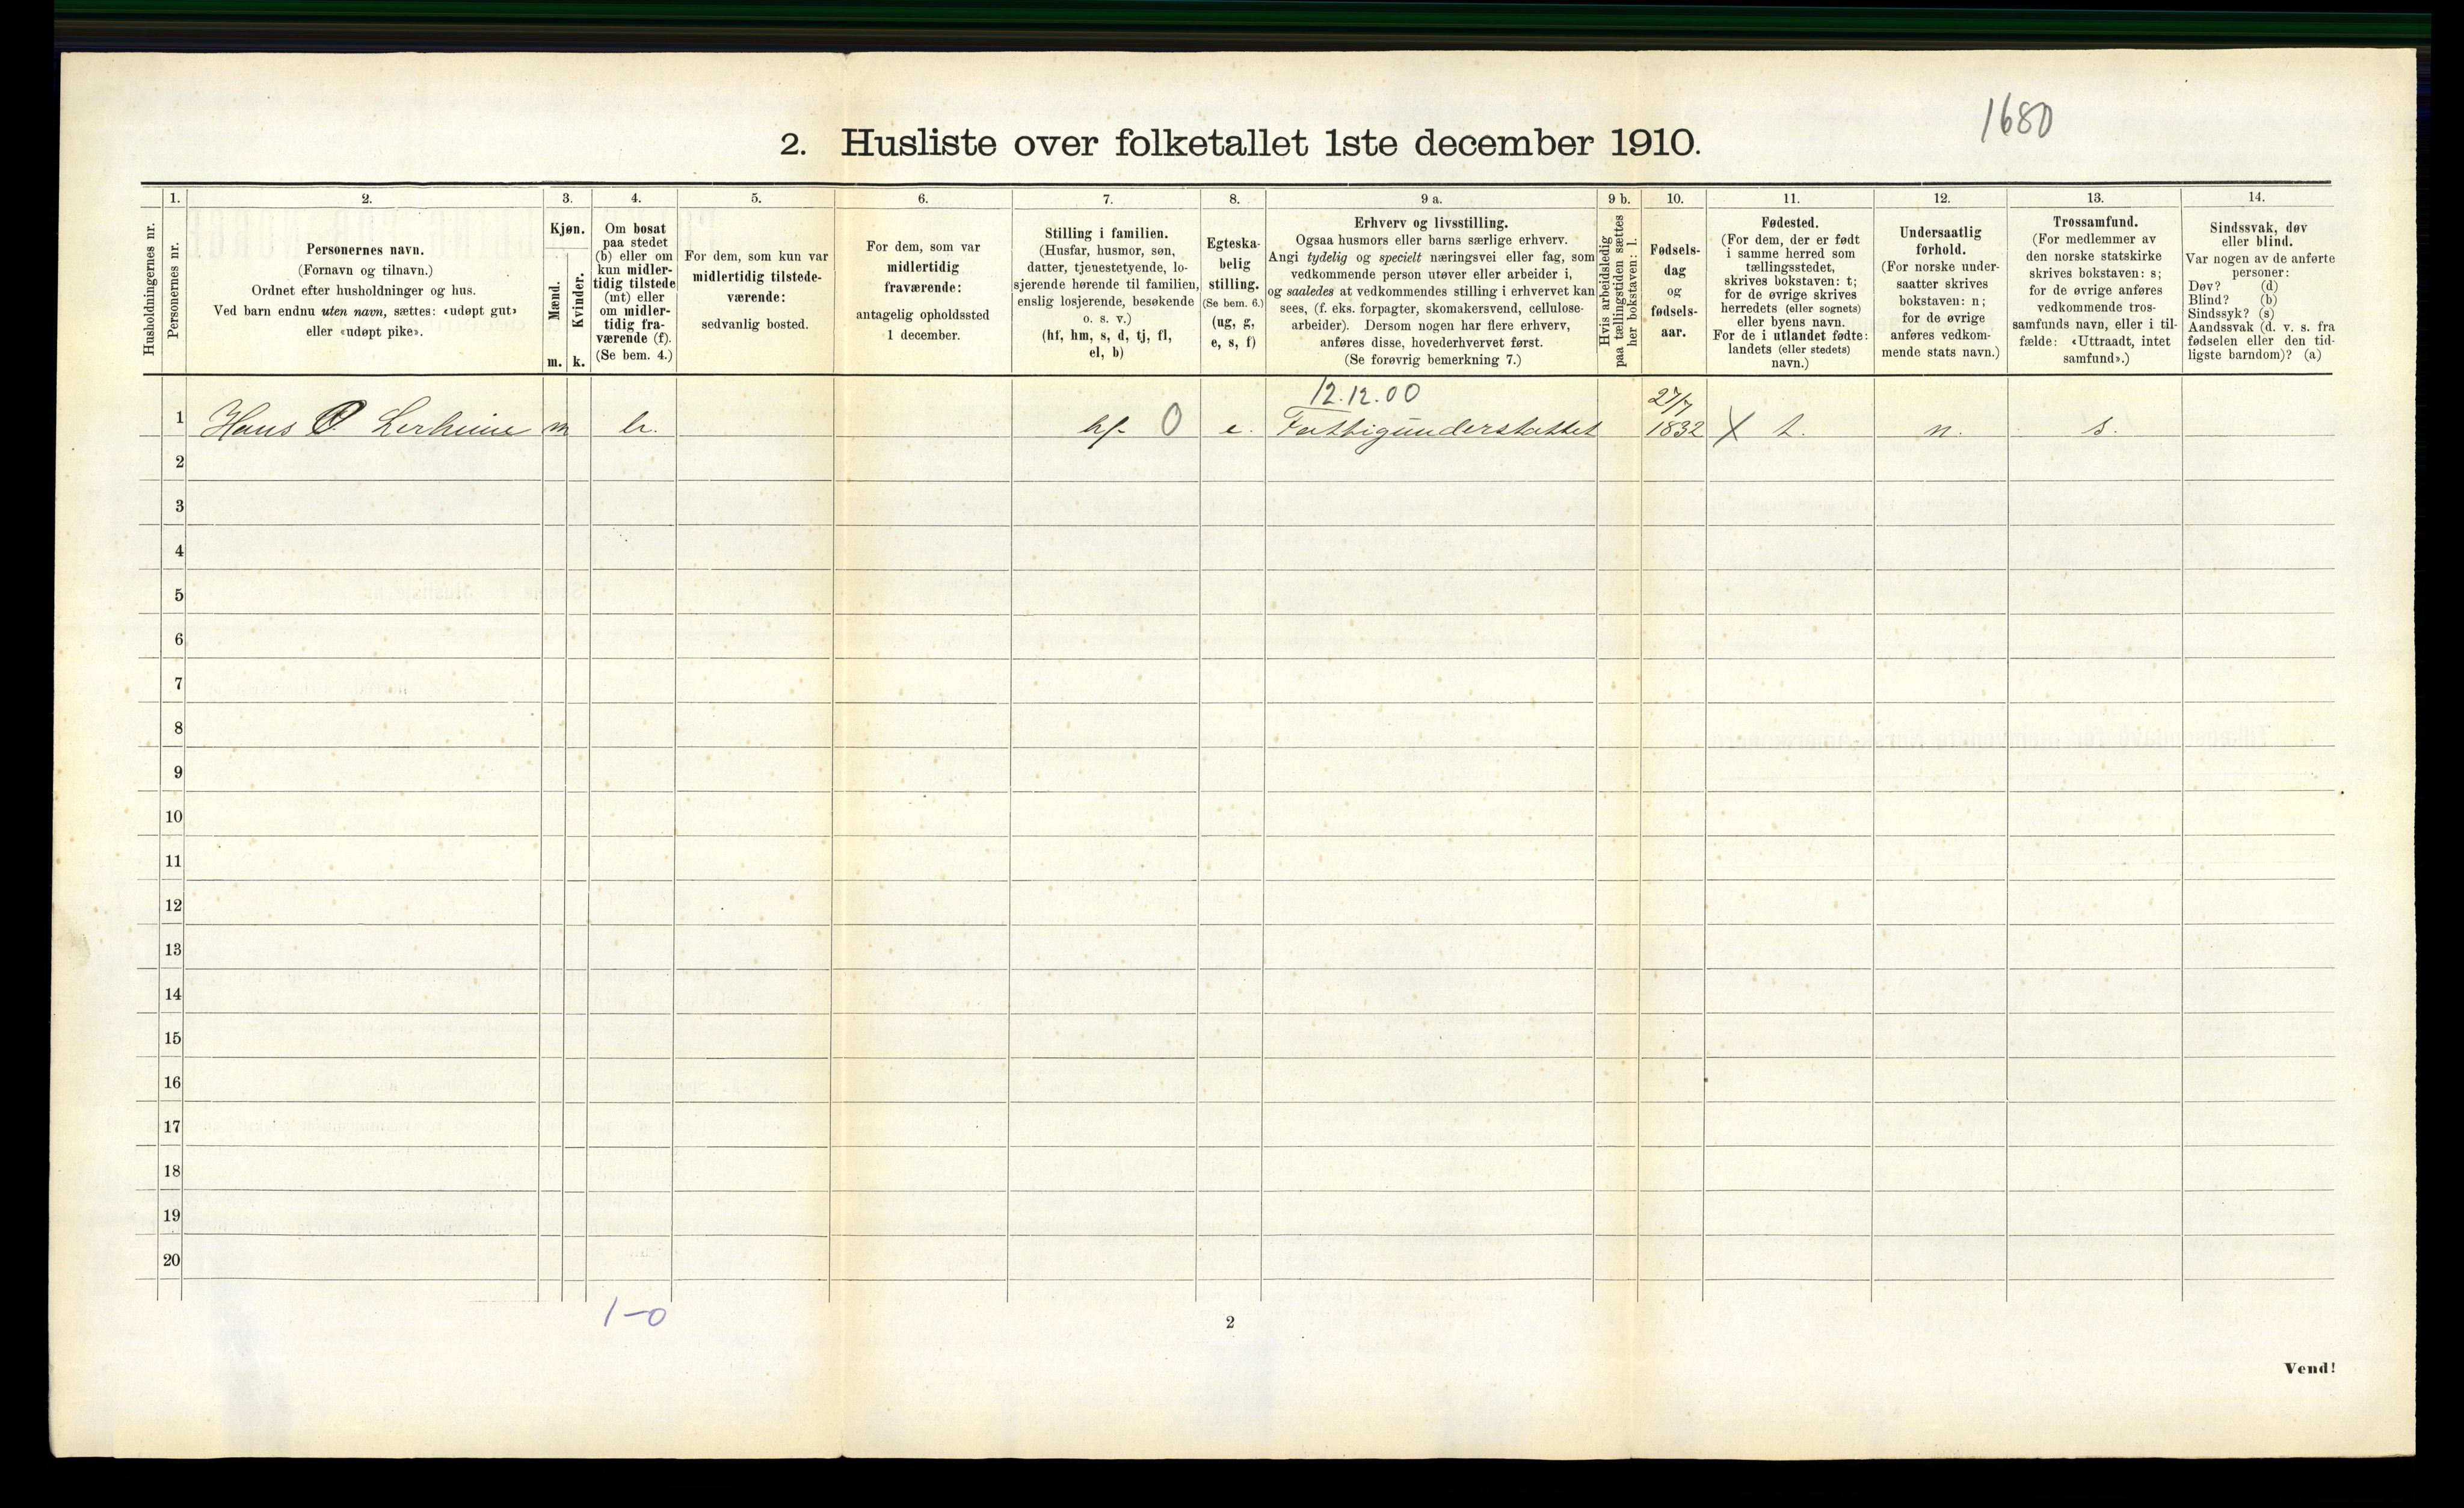 1680
2. Husliste over folketallet 1ste december 1910.
Husholdningernes nr.
1.
Personernes nr.
2.
Personernes navn.
(Fornavn og tilnavn.)
Ordnet efter husholdninger og hus.
Ved barn endnu uten navn, sættes: «udøpt gut»
eller «udøpt pike».
3.
Kjøn.
Mænd.
Kvinder.
m. k.
4.
Om bosat
paa stedet
(b) eller om
kun midler-
tidig tilstede
(mt) eller
om midler-
tidig fra-
værende (f).
(Se bem. 4.)
5.
For dem, som kun var
midlertidig tilstede-
værende:
sedvanlig bosted.
6.
For dem, som var
midlertidig
fraværende:
antagelig opholdssted
1 december.
7.
Stilling i familien.
(Husfar, husmor, søn,
datter, tjenestetyende, lo-
sjerende hørende til familien,
enslig losjerende, besøkende
o. s. v.)
(hf, hm, s, d, tj, fl,
el, b)
8.
Egteska-
belig
stilling.
(Se bem. 6.)
(ug, g,
e, s, f)
9 a.
Erhverv og livsstilling.
Ogsaa husmors eller barns særlige erhverv.
Angi tydelig og specielt næringsvei eller fag, som
vedkommende person utøver eller arbeider i,
og saaledes at vedkommendes stilling i erhvervet kan
sees, (f. eks. forpagter, skomakersvend, cellulose-
arbeider). Dersom nogen har flere erhverv,
anføres disse, hovederhvervet først.
(Se forøvrig bemerkning 7.)
9 b.
Hvis arbeidsledig
paa tællingstiden sættes
her bokstaven: l.
10.
Fødsels-
dag
og
fødsels-
aar.
11.
Fødested.
(For dem, der er født
i samme herred som
tællingsstedet,
skrives bokstaven: t;
for de øvrige skrives
herredets (eller sognets)
eller byens navn.
For de i utlandet fødte:
landets (eller stedets)
navn.)
12.
Undersaatlig
forhold.
(For norske under-
saatter skrives
bokstaven: n;
for de øvrige
anføres vedkom-
mende stats navn.)
13.
Trossamfund.
(For medlemmer av
den norske statskirke
skrives bokstaven: s;
for de øvrige anføres
vedkommende tros-
samfunds navn, eller i til-
fælde: «Uttraadt, intet
samfund».)
14.
Sindssvak, døv
eller blind.
Var nogen av de anførte
personer:
Døv? (d)
Blind? (b)
Sindssyk? (s)
Aandssvak (d. v. s. fra
fødselen eller den tid-
ligste barndom)? (a)
12.12.00 27/7
1 Hans O. m b. hf. 0 e. Fattigunderstøttet 1832 X t. n. s.
2
3
4
5
6
7
8
9
10
11
12
13
14
15
16
17
18
19
20
1-0
2
Vend!